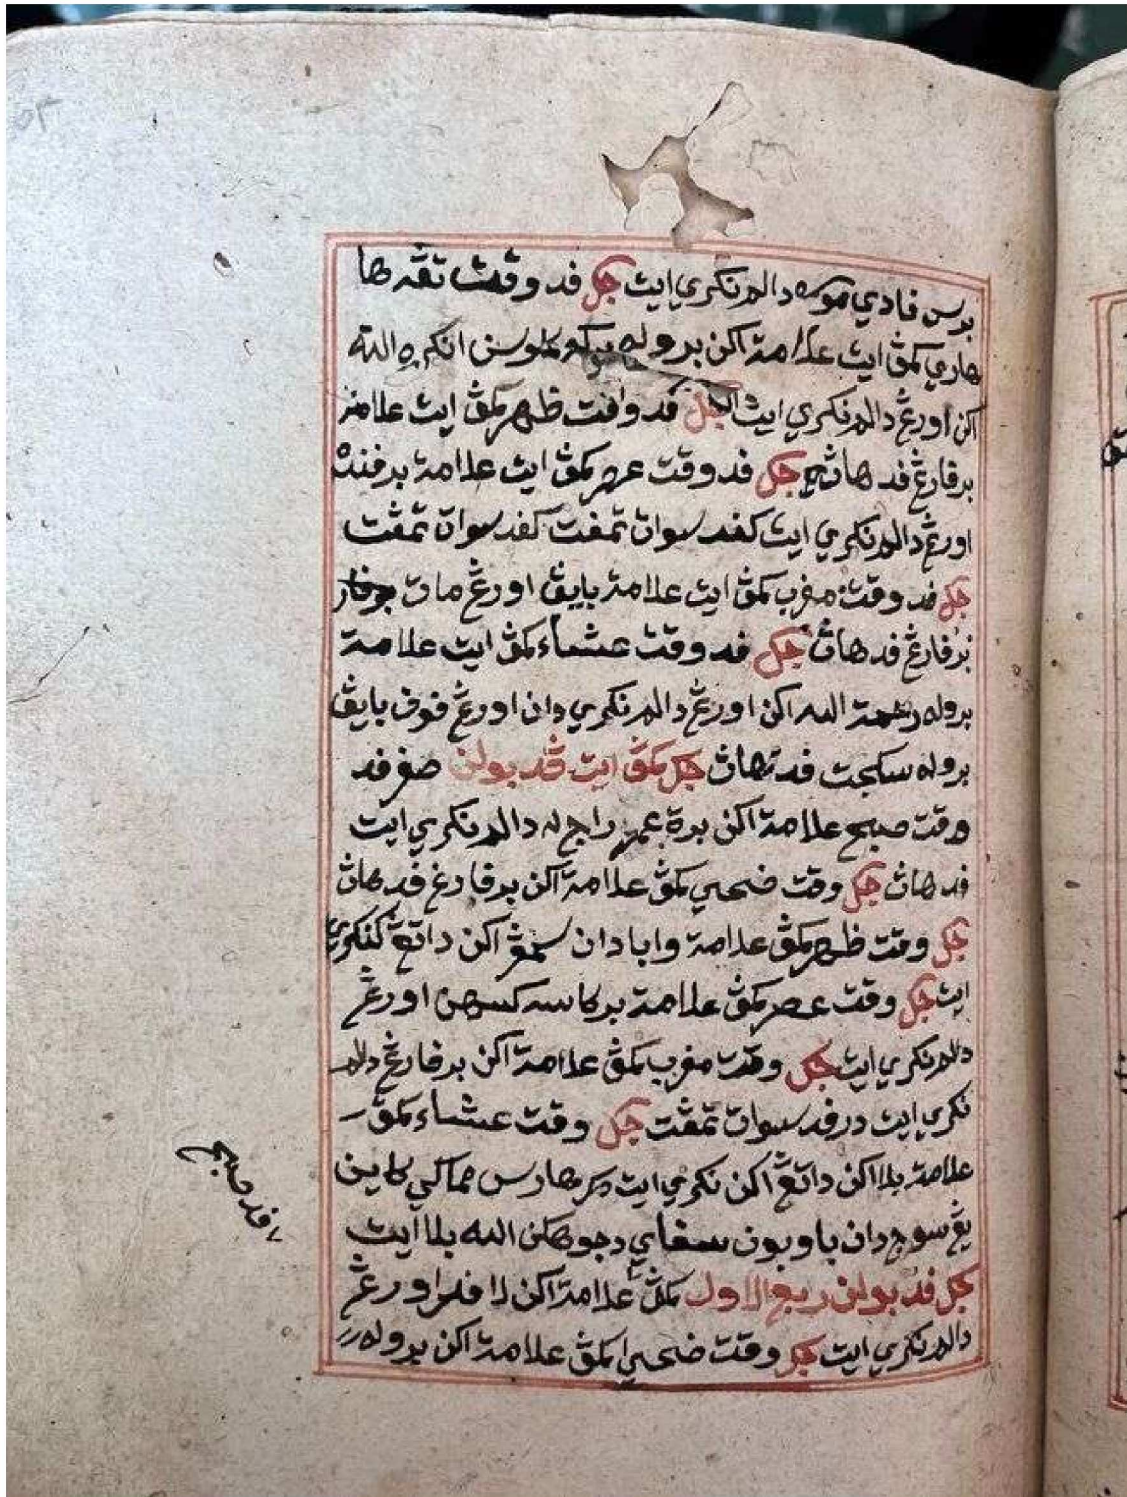 برس فادي موره دالم نكري ايت جك فد وقت تڠه ها
هاري كمڤ ايت علامة اكن بروله انكره الله
اكن اورڠ دالم نكري ايت جك فد وقت ظهر كمڤ ايت علامة
برفارڠ فد هاتڽ جك فد وقت عصر كمڤ ايت علامة برفنته
اورڠ دالم نكري ايت كفد سوات تمفت كفد سوات تمفت
جك فد وقت مغرب كمڤ ايت علامة بايڨ اورڠ مات برفار
برفارڠ فد هاتڽ جك فد وقت عشاء كمڤ ايت علامة
بروله رحمة الله اكن اورڠ دالم نكري دان اورڠ فون بايڨ
بروله سكجت فد تهات جك كمڤ ايت فد بولن صفر فد
وقت صبح علامة اكن برة دالم نكري ايت
فد هات جك وقت ضحى كمڤ علامة اكن برفارڠ فد هات
جك وقت ظهر كمڤ علامة وابا دان سمڤر اكن داتڠ كنكري
ايت جك وقت عصر كمڤ علامة بركاسه كسيهن اورڠ
دالم نكري ايت جك وقت مغرب كمڤ علامة اكن برفارڠ دالم
نكري ايت درفد سوات تمفت جك وقت عشاء كمڤ
علامة بلا اكن داتڠ اكن نكري ايت مك هارس مماكي كاين
يڠ سوج دان باو بون سفاي دجوهكن الله بلا ايت
جك فد بولن ربيع الاول كمڤ علامة اكن لافر اورڠ
دالم نكري ايت جك وقت ضحى كمڤ علامة اكن بروله
فد صبح